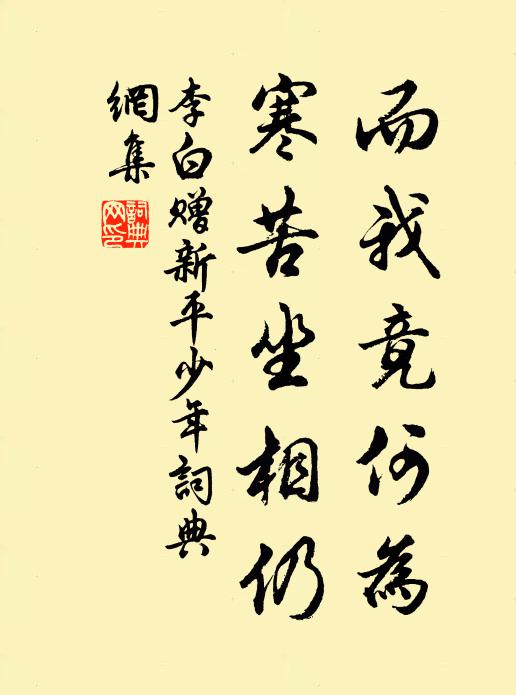 而我竟何為
寒苦坐相仍
李白贈新平少年詞典
網集
詞典
网印